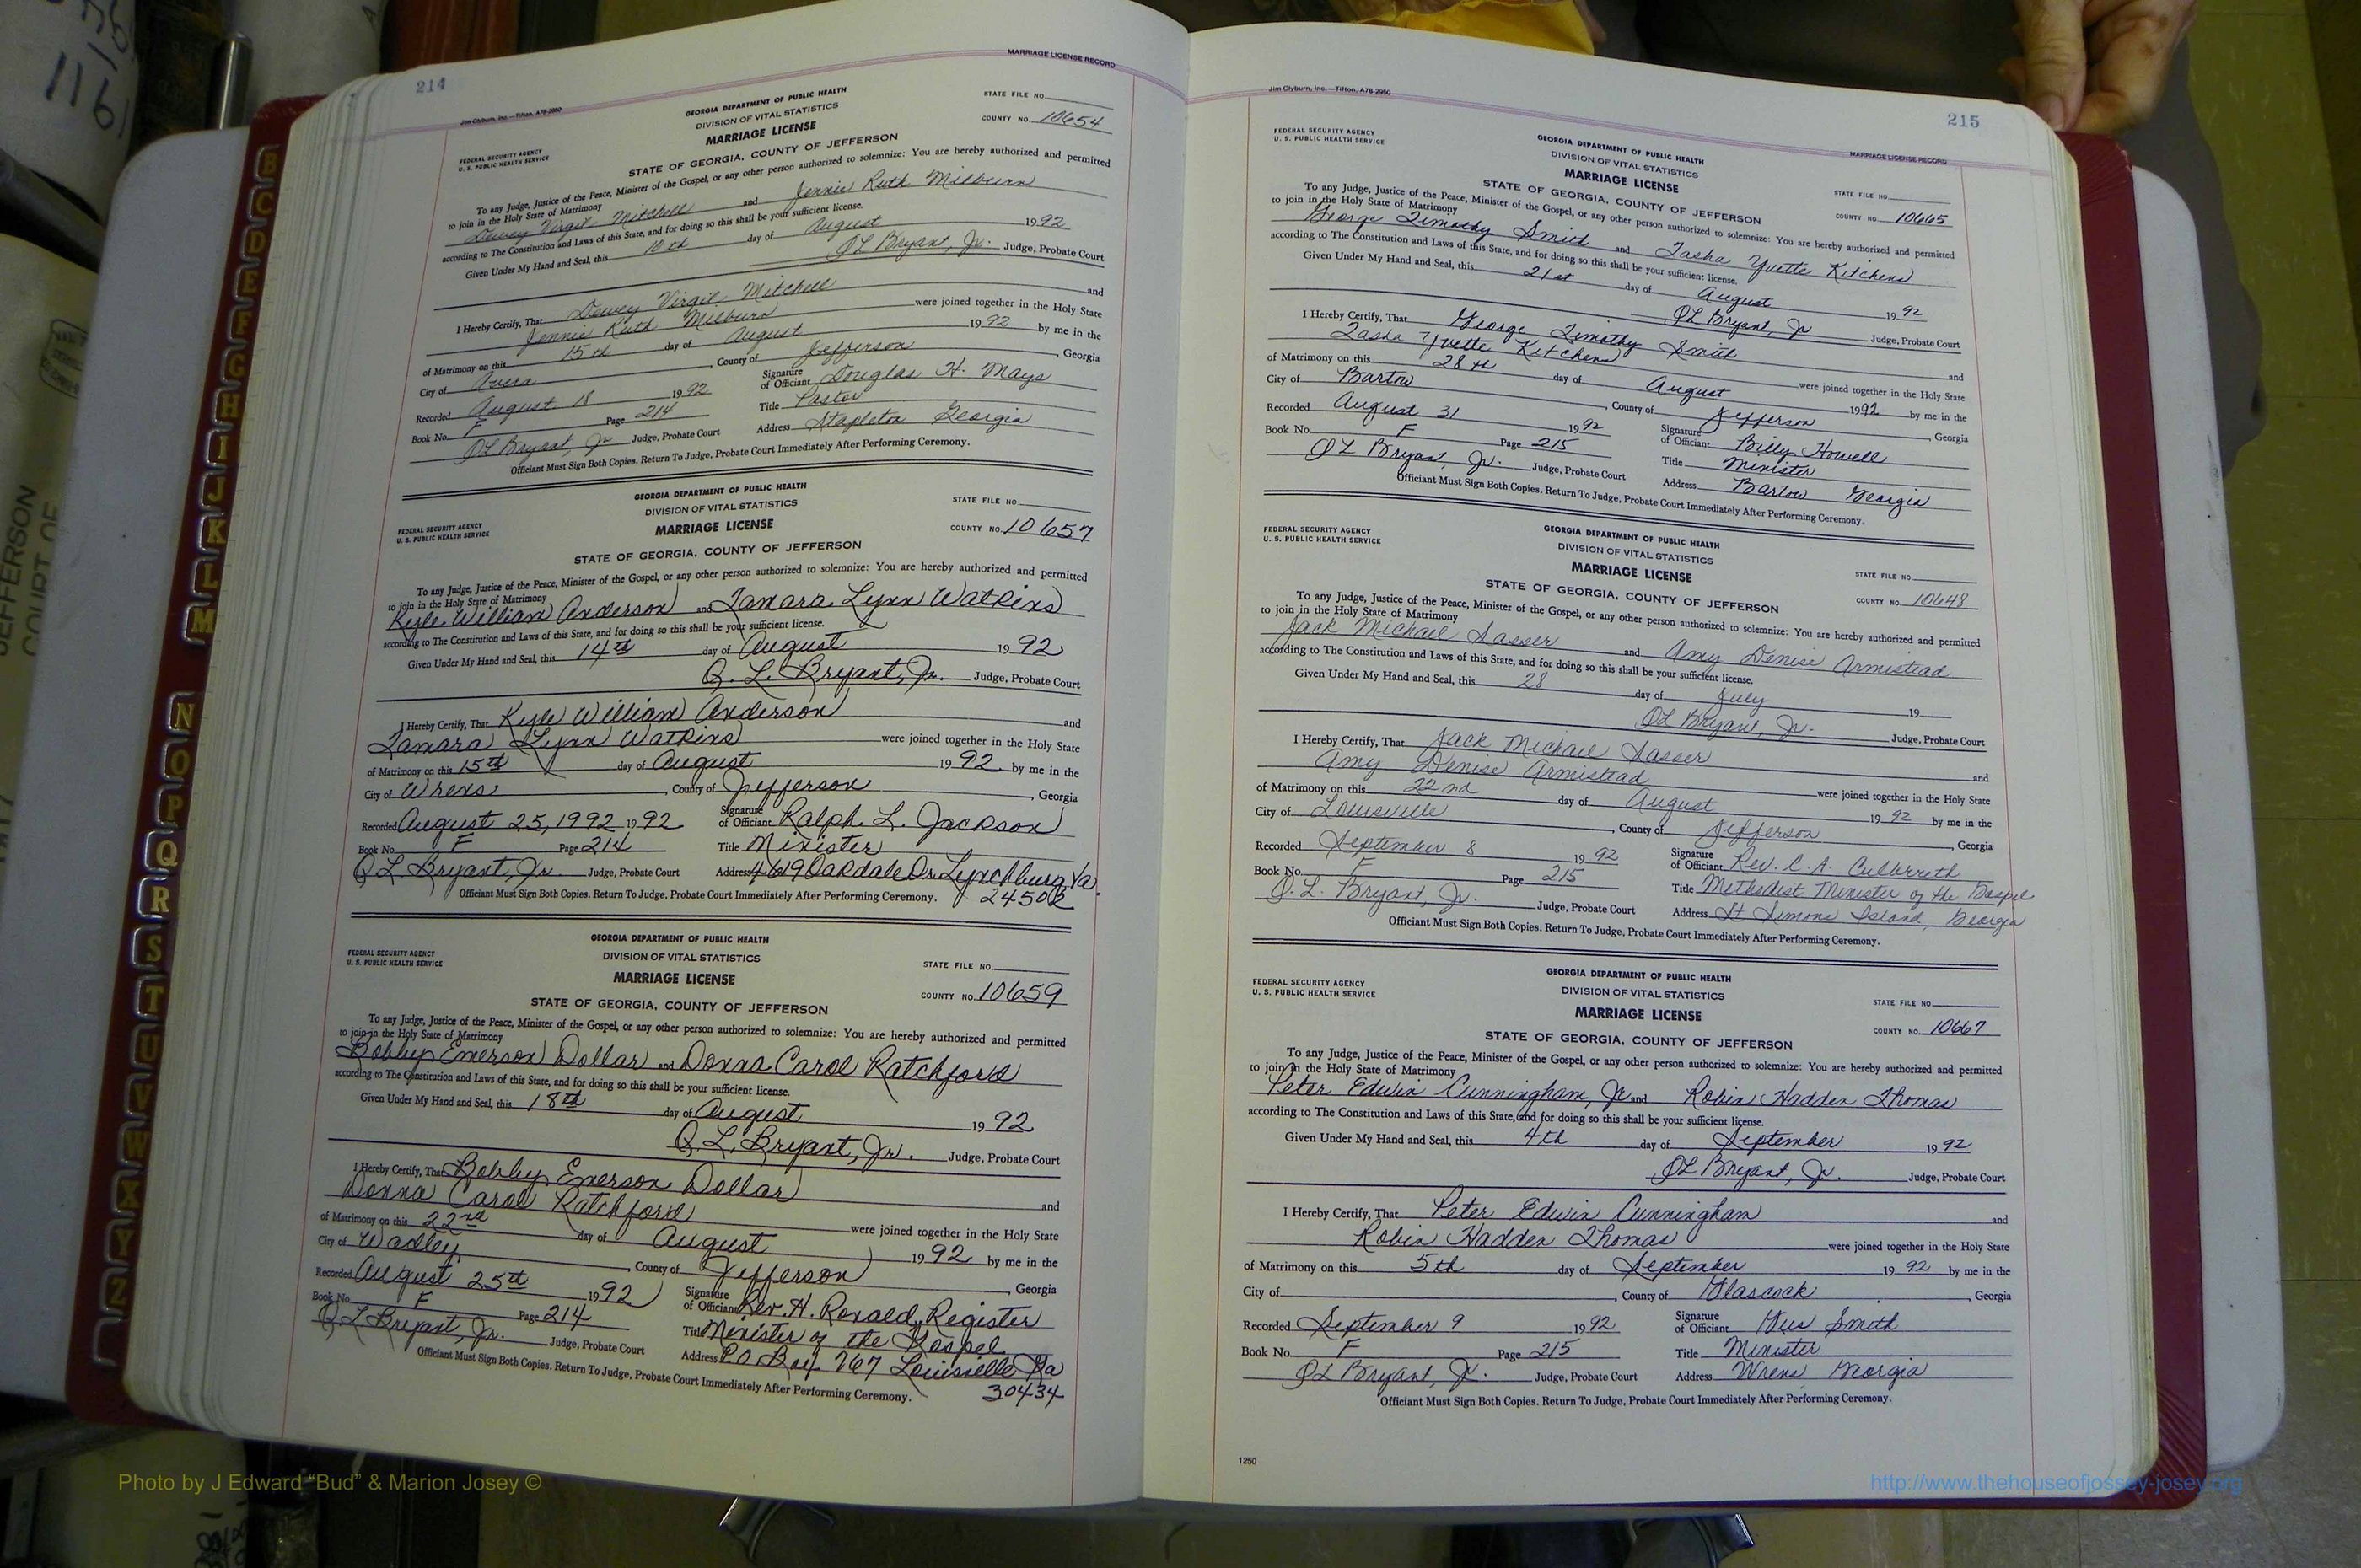 214
MARRIAGE LICENSE RECORD
Jim Clyburn, Inc.—Tifton, A78-2950
GEORGIA DEPARTMENT OF PUBLIC HEALTH
DIVISION OF VITAL STATISTICS
MARRIAGE LICENSE
STATE OF GEORGIA, COUNTY OF JEFFERSON
FEDERAL SECURITY AGENCY
U. S. PUBLIC HEALTH SERVICE
STATE FILE NO.
COUNTY NO. 10654
To any Judge, Justice of the Peace, Minister of the Gospel, or any other person authorized to solemnize: You are hereby authorized and permitted
to join in the Holy State of Matrimony
Dewey Virgil Mitchell and Jennie Ruth Milburn
according to The Constitution and Laws of this State, and for doing so this shall be your sufficient license.
Given Under My Hand and Seal, this 10th day of August 1992
QL Bryant, Jr. Judge, Probate Court
I Hereby Certify, That Dewey Virgil Mitchell and
Jennie Ruth Milburn were joined together in the Holy State
of Matrimony on this 15th day of August 1992 by me in the
City of Avera, County of Jefferson, Georgia
Recorded August 18 1992 Signature of Officiant Douglas H. Mays
Book No. F Page 214 Title Pastor
QL Bryant, Jr Judge, Probate Court Address Stapleton Georgia
Officiant Must Sign Both Copies. Return To Judge, Probate Court Immediately After Performing Ceremony.
GEORGIA DEPARTMENT OF PUBLIC HEALTH
DIVISION OF VITAL STATISTICS
MARRIAGE LICENSE
STATE OF GEORGIA, COUNTY OF JEFFERSON
FEDERAL SECURITY AGENCY
U. S. PUBLIC HEALTH SERVICE
STATE FILE NO.
COUNTY NO. 10657
To any Judge, Justice of the Peace, Minister of the Gospel, or any other person authorized to solemnize: You are hereby authorized and permitted
to join in the Holy State of Matrimony
Kyle William Anderson and Tamara Lynn Watkins
according to The Constitution and Laws of this State, and for doing so this shall be your sufficient license.
Given Under My Hand and Seal, this 14th day of August 1992
Q. L. Bryant, Jr. Judge, Probate Court
I Hereby Certify, That Kyle William Anderson and
Tamara Lynn Watkins were joined together in the Holy State
of Matrimony on this 15th day of August 1992 by me in the
City of Wrens, County of Jefferson, Georgia
Recorded August 25, 1992 1992 Signature of Officiant Ralph L. Jackson
Book No. F Page 214 Title Minister
QL Bryant, Jr. Judge, Probate Court Address 4619 Oakdale Dr Lynchburg, Va.
Officiant Must Sign Both Copies. Return To Judge, Probate Court Immediately After Performing Ceremony. 24502
GEORGIA DEPARTMENT OF PUBLIC HEALTH
DIVISION OF VITAL STATISTICS
MARRIAGE LICENSE
STATE OF GEORGIA, COUNTY OF JEFFERSON
FEDERAL SECURITY AGENCY
U. S. PUBLIC HEALTH SERVICE
STATE FILE NO.
COUNTY NO. 10659
To any Judge, Justice of the Peace, Minister of the Gospel, or any other person authorized to solemnize: You are hereby authorized and permitted
to join in the Holy State of Matrimony
Bobby Emerson Dollar and Donna Carol Ratchford
according to The Constitution and Laws of this State, and for doing so this shall be your sufficient license.
Given Under My Hand and Seal, this 18th day of August 1992
Q. L. Bryant, Jr. Judge, Probate Court
I Hereby Certify, That Bobby Emerson Dollar and
Donna Carol Ratchford were joined together in the Holy State
of Matrimony on this 22nd day of August 1992 by me in the
City of Wadley, County of Jefferson, Georgia
Recorded August 25th 1992 Signature of Officiant Rev. H. Ronald Register
Book No. F Page 214 Title Minister of the Gospel
QL Bryant, Jr. Judge, Probate Court Address P.O. Box 767 Louisville Ga
Officiant Must Sign Both Copies. Return To Judge, Probate Court Immediately After Performing Ceremony. 30434
Jim Clyburn, Inc.—Tifton, A78-2950
215
MARRIAGE LICENSE RECORD
FEDERAL SECURITY AGENCY
U. S. PUBLIC HEALTH SERVICE
GEORGIA DEPARTMENT OF PUBLIC HEALTH
DIVISION OF VITAL STATISTICS
MARRIAGE LICENSE
STATE OF GEORGIA, COUNTY OF JEFFERSON
STATE FILE NO.
COUNTY NO. 10665
To any Judge, Justice of the Peace, Minister of the Gospel, or any other person authorized to solemnize: You are hereby authorized and permitted
to join in the Holy State of Matrimony
George Timothy Smith and Tasha Yvette Kitchens
according to The Constitution and Laws of this State, and for doing so this shall be your sufficient license.
Given Under My Hand and Seal, this 21st day of August 1992
QL Bryant, Jr Judge, Probate Court
I Hereby Certify, That George Timothy Smith and
Tasha Yvette Kitchens were joined together in the Holy State
of Matrimony on this 28th day of August 1992 by me in the
City of Bartow, County of Jefferson, Georgia
Recorded August 31 1992 Signature of Officiant Billy Howell
Book No. F Page 215 Title Minister
QL Bryant, Jr. Judge, Probate Court Address Bartow Georgia
Officiant Must Sign Both Copies. Return To Judge, Probate Court Immediately After Performing Ceremony.
FEDERAL SECURITY AGENCY
U. S. PUBLIC HEALTH SERVICE
GEORGIA DEPARTMENT OF PUBLIC HEALTH
DIVISION OF VITAL STATISTICS
MARRIAGE LICENSE
STATE OF GEORGIA, COUNTY OF JEFFERSON
STATE FILE NO.
COUNTY NO. 10648
To any Judge, Justice of the Peace, Minister of the Gospel, or any other person authorized to solemnize: You are hereby authorized and permitted
to join in the Holy State of Matrimony
Jack Michael Sasser and Amy Denise Armistead
according to The Constitution and Laws of this State, and for doing so this shall be your sufficient license.
Given Under My Hand and Seal, this 28 day of July 19
QL Bryant, Jr. Judge, Probate Court
I Hereby Certify, That Jack Michael Sasser and
Amy Denise Armistead were joined together in the Holy State
of Matrimony on this 22nd day of August 1992 by me in the
City of Louisville, County of Jefferson, Georgia
Recorded September 8 1992 Signature of Officiant Rev. C. A. Culbreth
Book No. F Page 215 Title Methodist Minister of the Gospel
Q. L. Bryant, Jr. Judge, Probate Court Address St Simons Island, Georgia
Officiant Must Sign Both Copies. Return To Judge, Probate Court Immediately After Performing Ceremony.
FEDERAL SECURITY AGENCY
U. S. PUBLIC HEALTH SERVICE
GEORGIA DEPARTMENT OF PUBLIC HEALTH
DIVISION OF VITAL STATISTICS
MARRIAGE LICENSE
STATE OF GEORGIA, COUNTY OF JEFFERSON
STATE FILE NO.
COUNTY NO. 10667
To any Judge, Justice of the Peace, Minister of the Gospel, or any other person authorized to solemnize: You are hereby authorized and permitted
to join in the Holy State of Matrimony
Peter Edwin Cunningham, Jr and Robin Hadden Thomas
according to The Constitution and Laws of this State, and for doing so this shall be your sufficient license.
Given Under My Hand and Seal, this 4th day of September 1992
QL Bryant, Jr. Judge, Probate Court
I Hereby Certify, That Peter Edwin Cunningham and
Robin Hadden Thomas were joined together in the Holy State
of Matrimony on this 5th day of September 1992 by me in the
City of , County of Glascock, Georgia
Recorded September 9 1992 Signature of Officiant Gus Smith
Book No. F Page 215 Title Minister
QL Bryant, Jr. Judge, Probate Court Address Wrens Georgia
Officiant Must Sign Both Copies. Return To Judge, Probate Court Immediately After Performing Ceremony.
1250
B
C
D
E
F
G
H
I
J
K
L
M
N
O
P
Q
R
S
T
U
V
W
X
Y
Z
JEFFERSON
COURT OF
Photo by J Edward “Bud” & Marion Josey ©
http://www.thehouseofjossey-josey.org